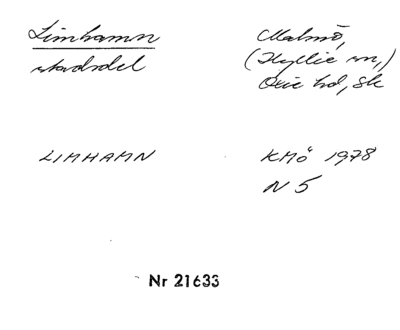 Limhamn
stadsdel
Malmö,
(Hyllie sn,)
Oxie hd, Sk
LIMHAMN
KMÖ 1978
N 5
Nr 21633